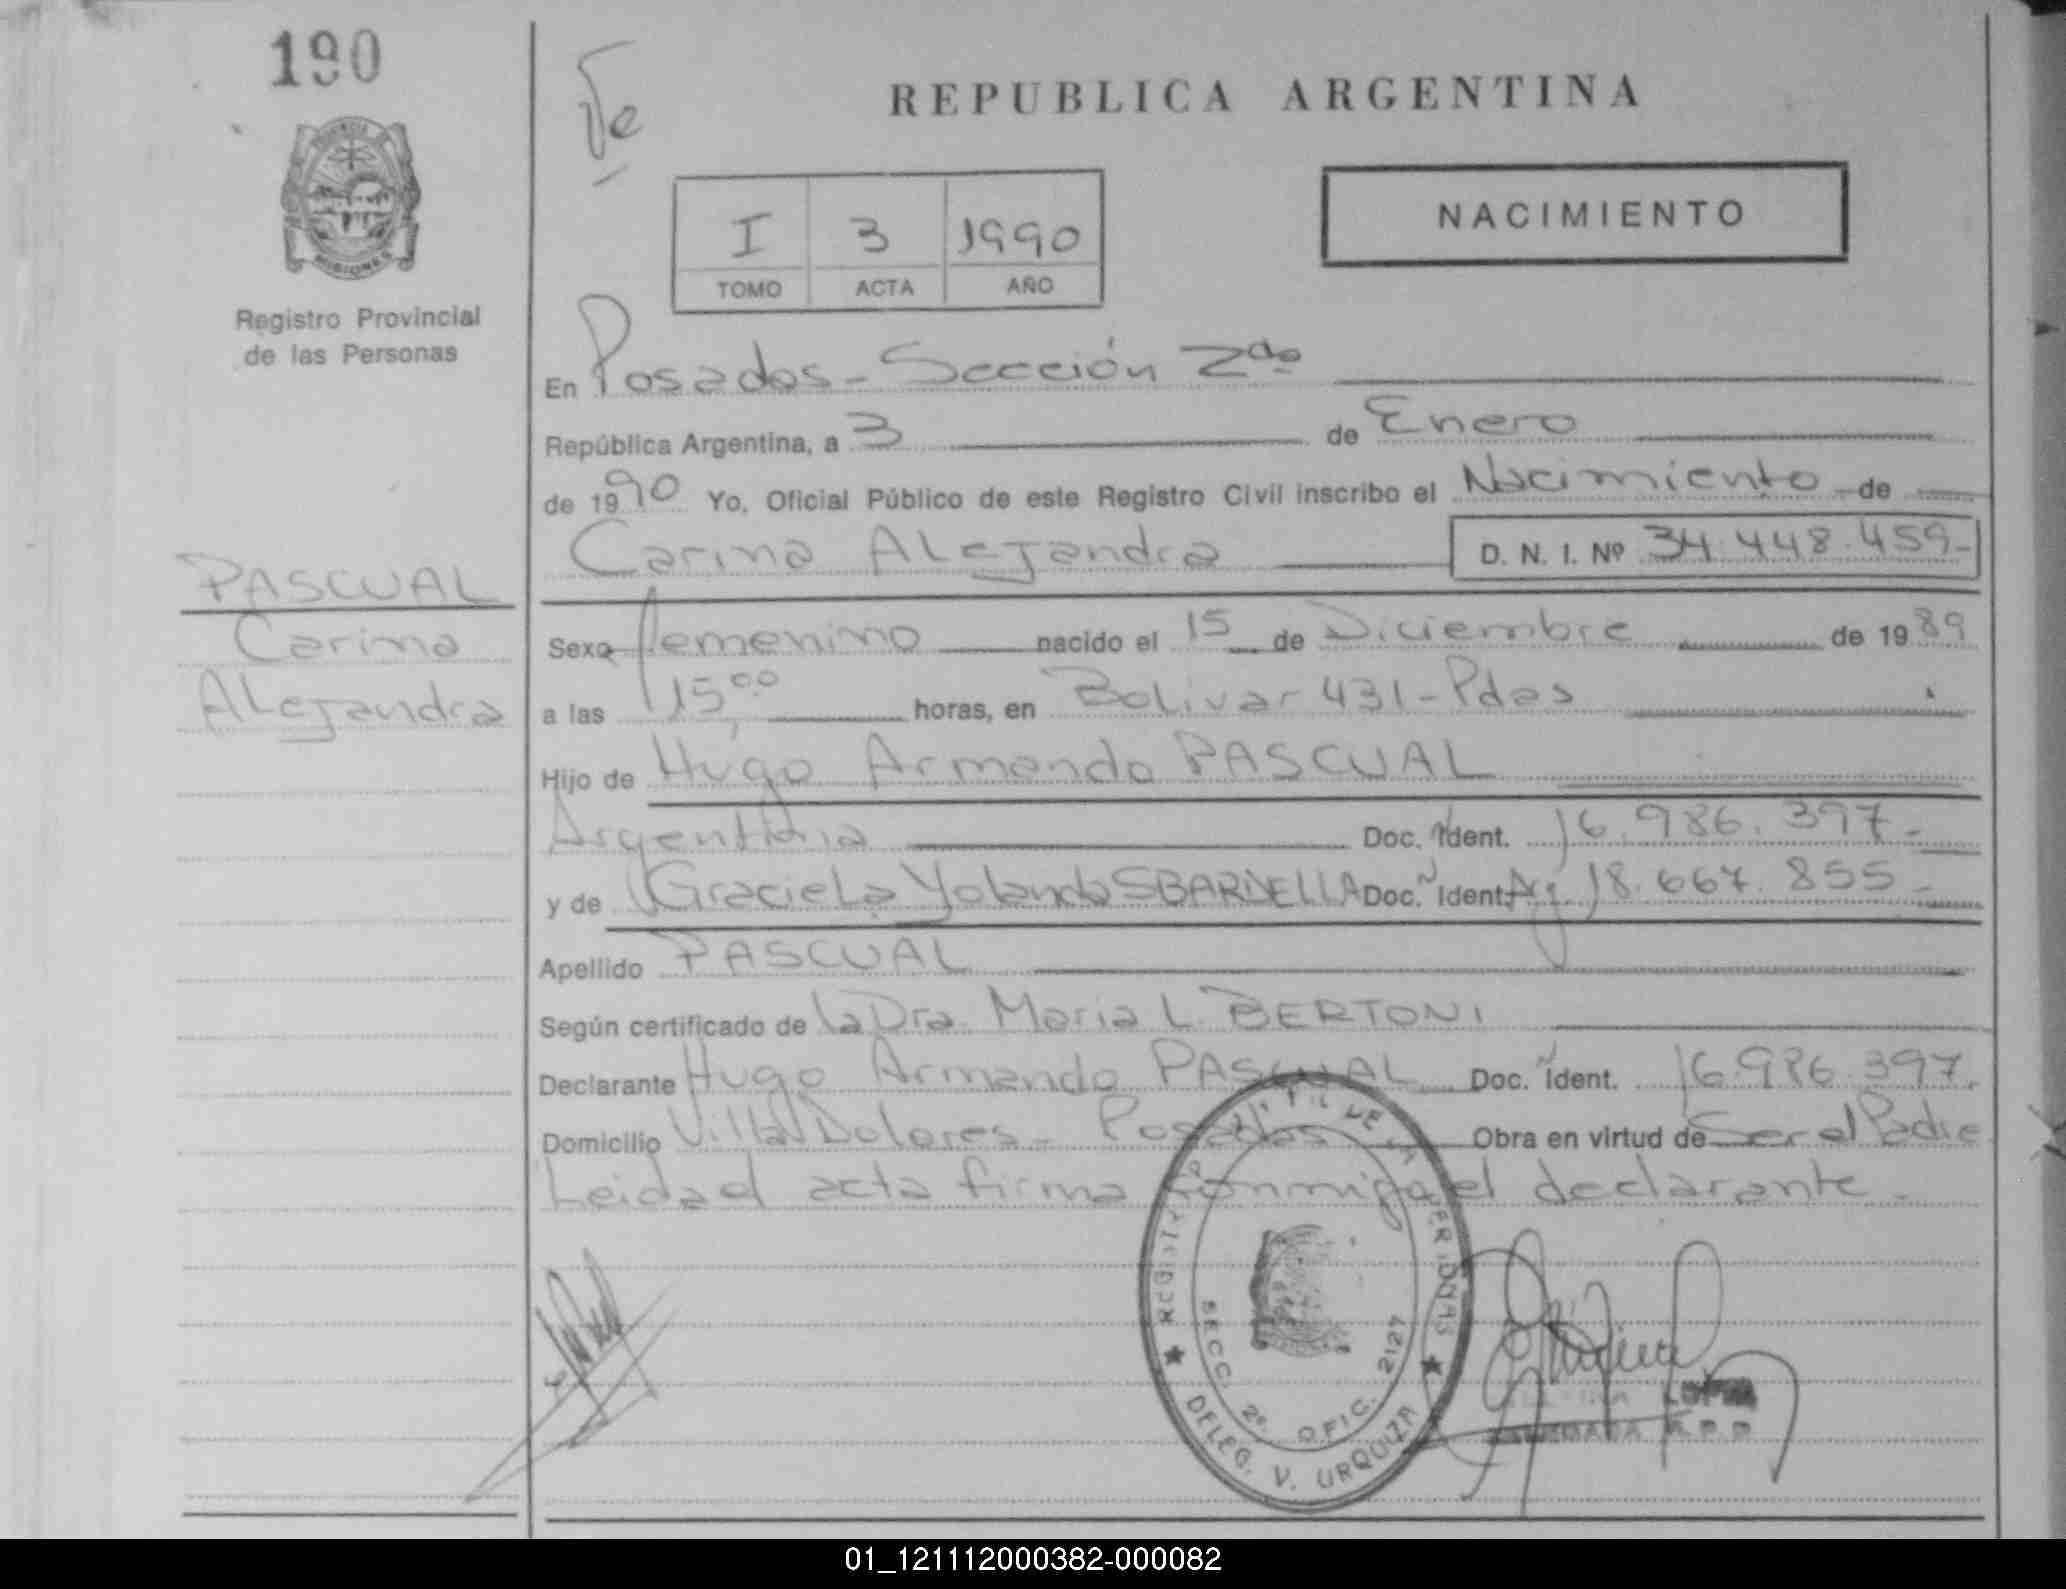 190
PROVINCIA DE
MISIONES
Registro Provincial
de las Personas
PASCUAL
Carina
Alejandra
REPUBLICA ARGENTINA
NACIMIENTO
I 3 1990
TOMO ACTA AÑO
En Posadas - Sección 2da
República Argentina, a 3 de Enero
de 1990 Yo, Oficial Público de este Registro Civil inscribo el Nacimiento de
Carina Alejandra D. N. I. Nº 34.448.459-
Sexo femenino nacido el 15 de Diciembre de 1989
a las 15,00 horas, en Bolivar 431 - Pdas
Hijo de Hugo Armando PASCUAL
Argentina Doc. Ident. 16.986.397.-
y de Graciela Yolanda SBARDELLA Doc. Ident. Arg 18.667.855-
Apellido PASCUAL
Según certificado de la Dra. Maria L. BERTONI
Declarante Hugo Armando PASCUAL Doc. Ident. 16.986.397.
Domicilio Villa Dolores - Posadas Obra en virtud de Ser el Padre
Leida el acta firma conmigo el declarante.-
REGISTRO CIVIL DE LAS PERSONAS
SECC. 2º. OFIC. 2127
DELEG. V. URQUIZA
LOPEZ
R.P.P.
01_121112000382-000082